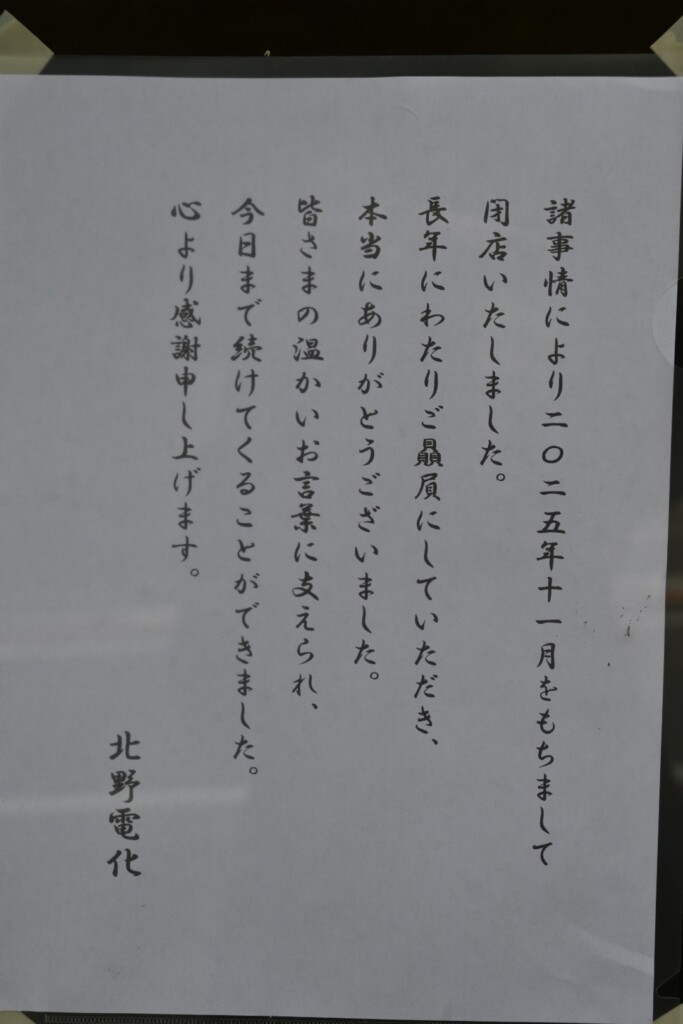 諸事情により二〇二五年十一月をもちまして
閉店いたしました。
長年にわたりご贔屓にしていただき、
本当にありがとうございました。
皆さまの温かいお言葉に支えられ、
今日まで続けてくることができました。
心より感謝申し上げます。
北野電化